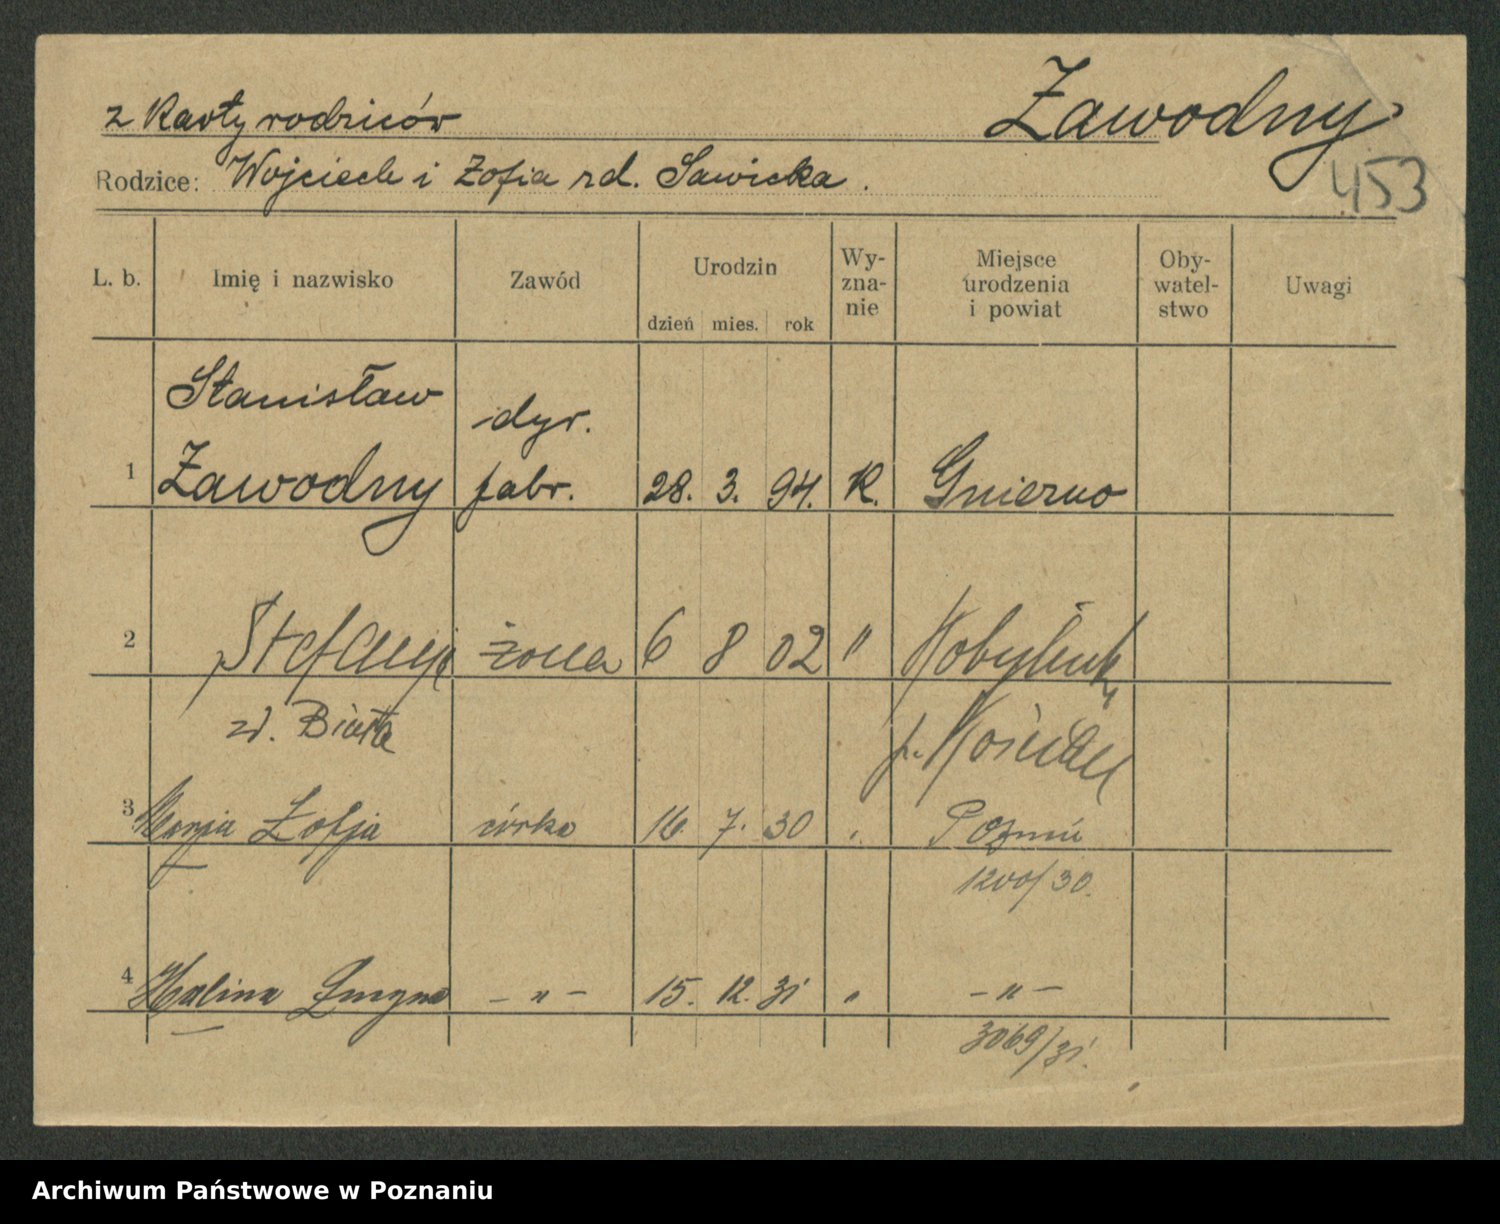 z Karty rodziców
Zawodny
Rodzice: Wojciech i Zofia zd. Sawicka.
453
L. b. Imię i nazwisko Zawód Urodzin Wy-zna-nie Miejsce urodzenia i powiat Oby-watel-stwo Uwagi
dzień mies. rok
Stanisław dyr.
1 Zawodny fabr. 28. 3. 94. K. Gniezno
2 Stefanja żona 6 8 02 " Kobylniki
zd. Biała p. Kościan
3 Marja Zofja córka 16. 7. 30 " Poznań
1200/30.
4 Halina - " - 15. 12. 31 " - " -
3069/31.
Archiwum Państwowe w Poznaniu